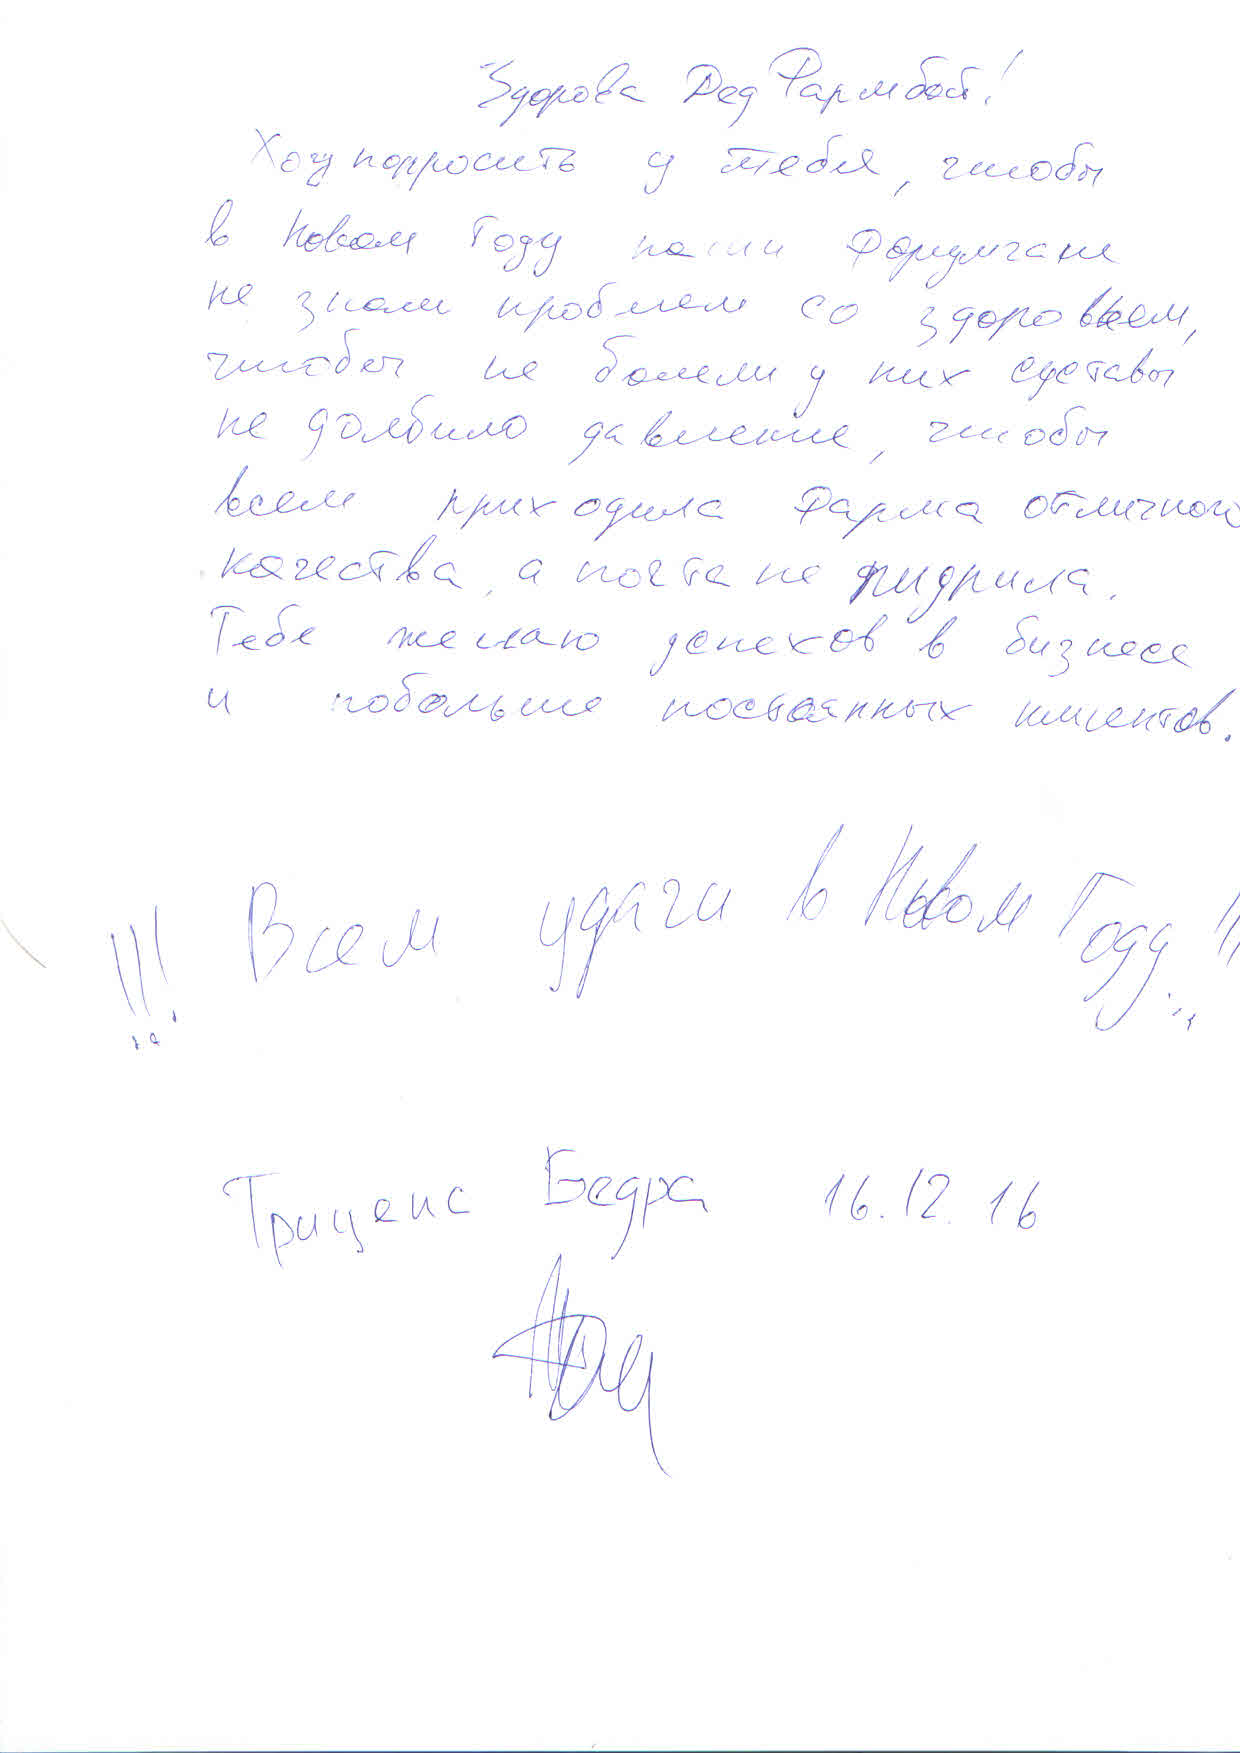 Здорова Дед Фармбой!
Хочу попросить у тебя, чтобы
в Новом Году наши Форумчане
не знали проблем со здоровьем,
чтобы не болели у них суставы
не долбило давление, чтобы
всем приходила Фарма отличного
качества, а почта не пидрила.
Тебе желаю успехов в бизнесе
и побольше постоянных клиентов.
!!! Всем удачи в Новом Году !!!
Трицепс Бедра 16.12.16